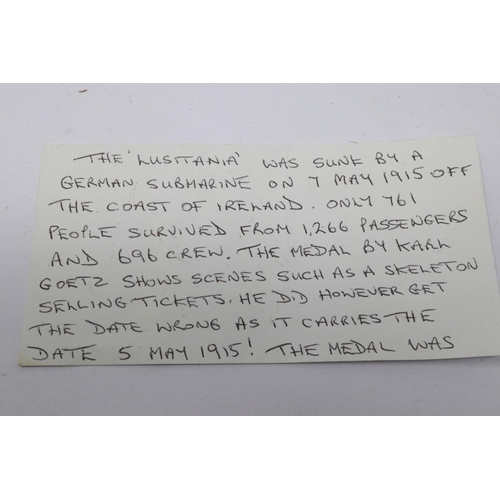 THE 'LUSITANIA' WAS SUNK BY A
GERMAN SUBMARINE ON 7 MAY 1915 OFF
THE COAST OF IRELAND. ONLY 761
PEOPLE SURVIVED FROM 1,266 PASSENGERS
AND 696 CREW. THE MEDAL BY KARL
GOETZ SHOWS SCENES SUCH AS A SKELETON
SELLING TICKETS. HE DID HOWEVER GET
THE DATE WRONG AS IT CARRIES THE
DATE 5 MAY 1915! THE MEDAL WAS